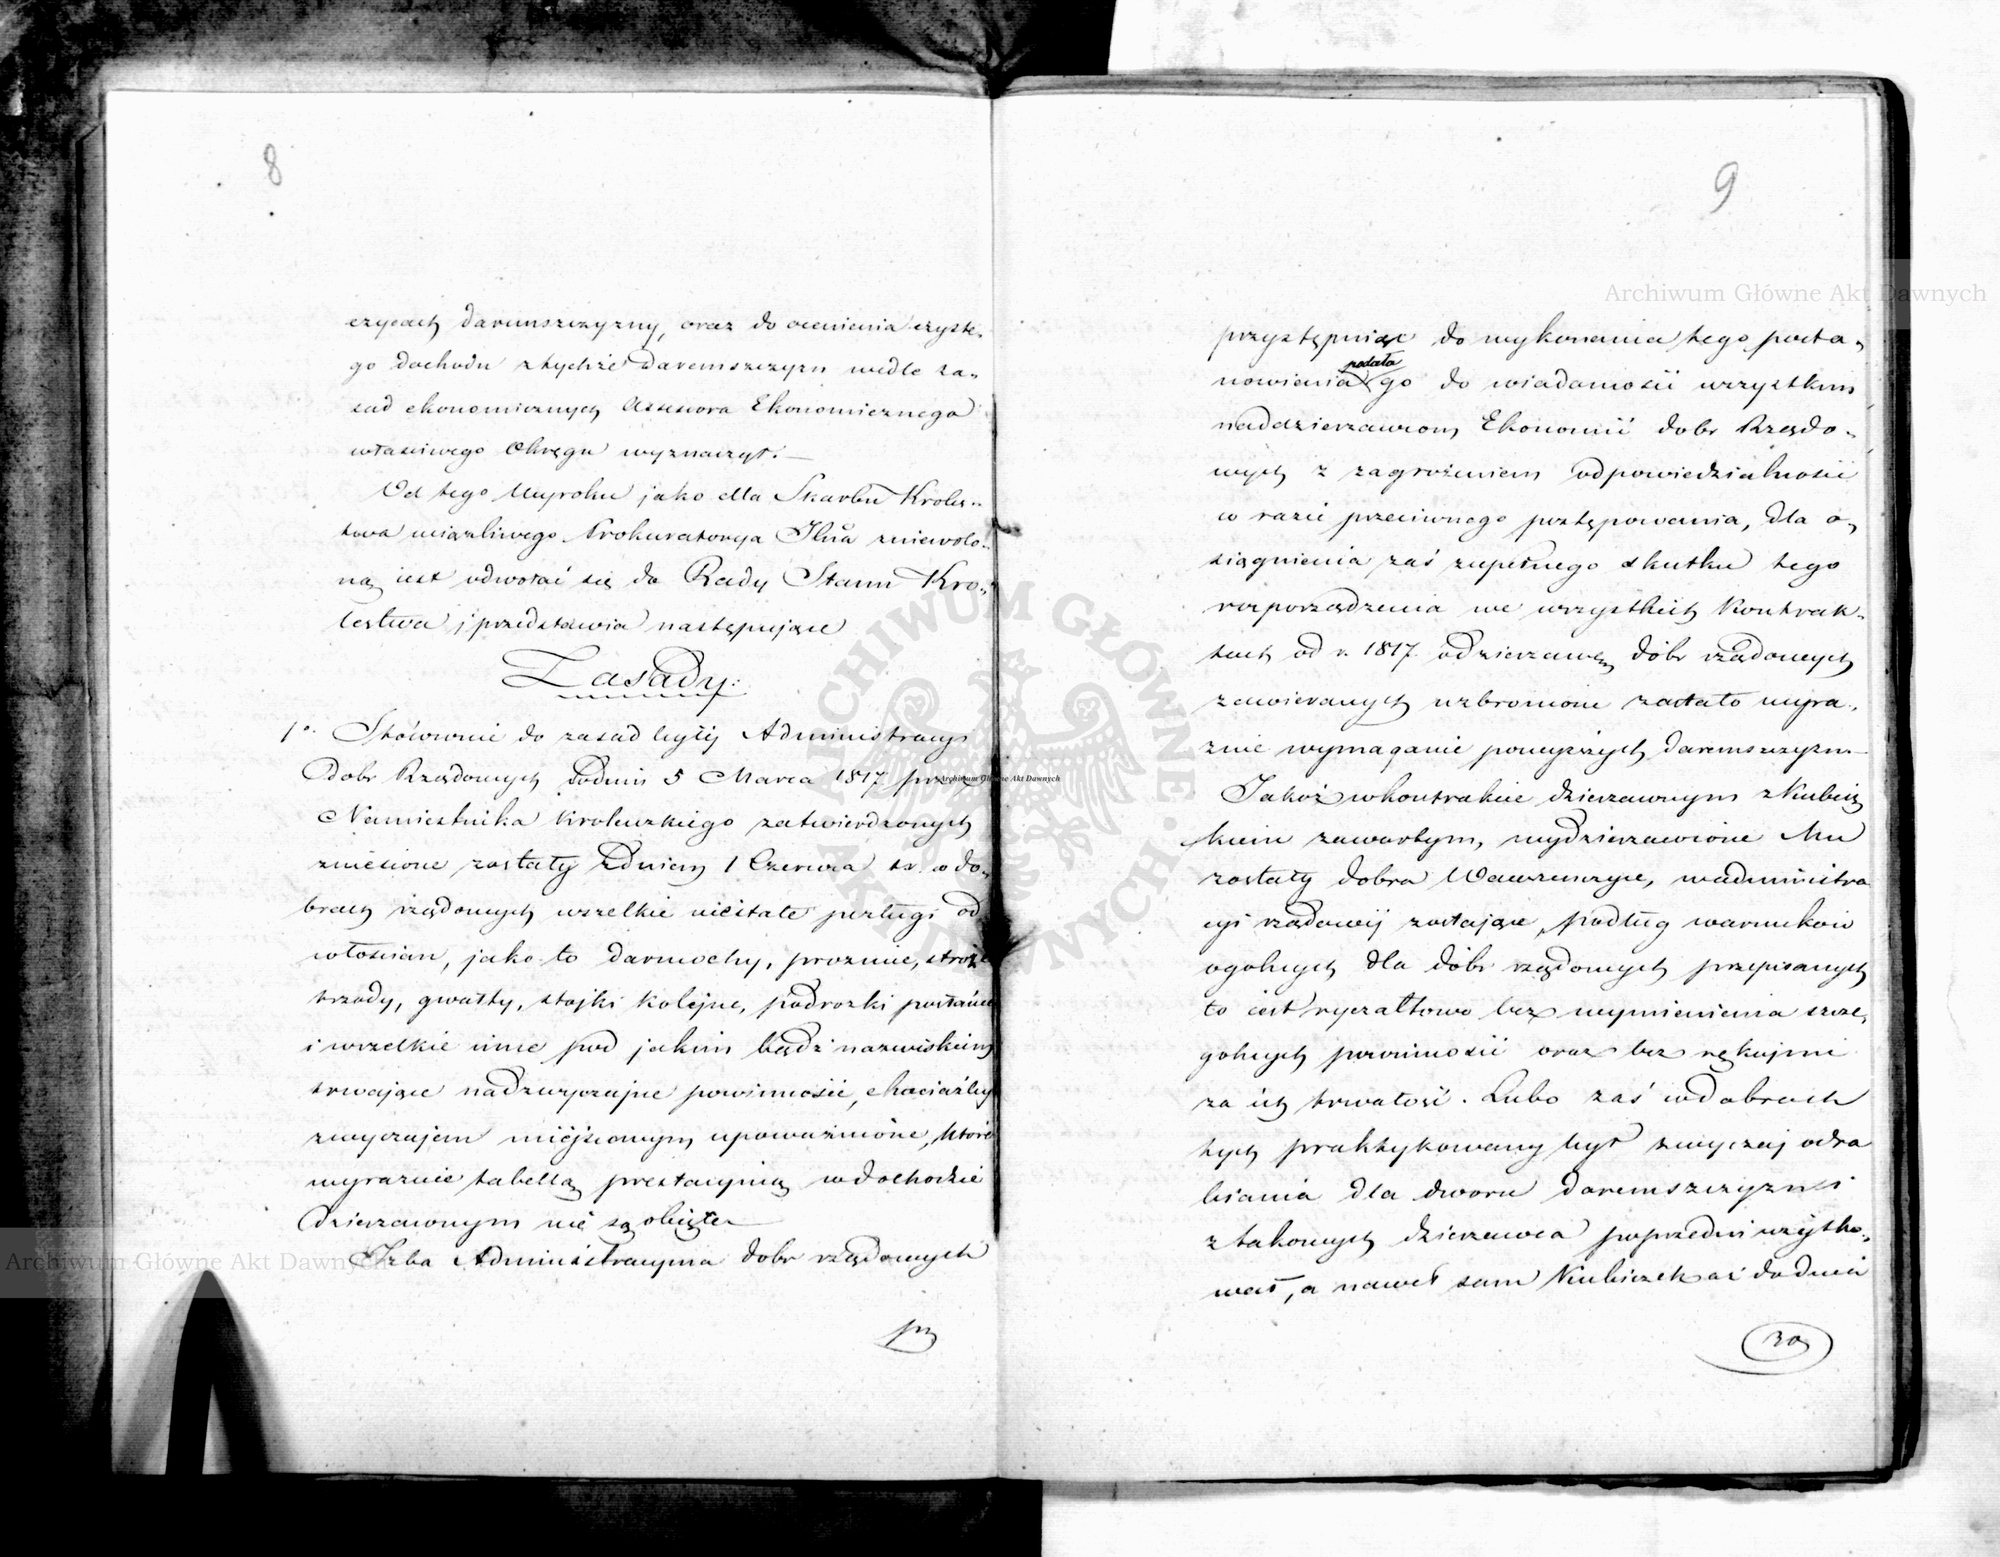 8
czycach daremszczyzny, oraz do ocenienia czyste-
go dochodu z tychże daremszczyzn wedle za-
sad ekonomicznych Assessora Ekonomicznego
właściwego Okręgu wyznaczył.
Od tego Wyroku jako dla Skarbu Króles-
twa uciążliwego Prokuratorya Jlna zniewolo-
ną jest odwołać się do Rady Stanu Kró-
lestwa i przedstawia następujące
Zasady:
1o. Stósownie do zasad byłej Administracyi
dobr Rządowych pod dniem 5 Marca 1817 przez
Namiestnika Królewskiego zatwierdzonych
zniesione zostały z dniem 1 Czerwca t. r. w do-
brach rządowych wszelkie niestałe posługi od
włościan, jako to darmochy, proznice, stroże
trzody, gwałty, stojki kolejne, podrozki postańce
i wszelkie inne pod jakim bądź nazwiskiem
trwające nadzwyczajne powinności, chociażby
zwyczajem miejscowym upoważnione, które
wyraźnie tabellą prestacyiną w dochodzie
dzierzawnym nie są objęte
Izba Administracyina dobr rządowych
prz
9
przystępuiąc do wykonania tego posta-
podała
nowienia go do wiadomości wszystkim
naddzierzawcom Ekonomii dobr Rządo-
wych z zagrożeniem odpowiedzialności
w razie przeciwnego postępowania, dla o-
siągnienia zaś zupełnego skutku tego
rozporządzenia we wszystkich Kontrak-
tach od r. 1817 o dzierzawę dóbr rządowych
zawieranych wzbronione zostało wyra-
źnie wymaganie powyższych daremszczyzn
Jakoż w kontrakcie dzierzawnym z Kubicz
kiem zawartym, wydzierzawione Mu
zostały dobra Wawrzenczyce, w administra
cyi rządowej zostające, podług warunków
ogólnych dla dóbr rządowych przepisanych
to jest ryczałtowo bez wymienienia szcze-
gólnych powinności oraz bez rękojmi
za ich trwałość. Lubo zaś w dobrach
tych praktykowany był zwyczaj odra
biania dla dworu daremszczyzn i
z takowych dzierzawca poprzedni użytko-
wał, a nawet sam Kubiczek aż do dnia
30